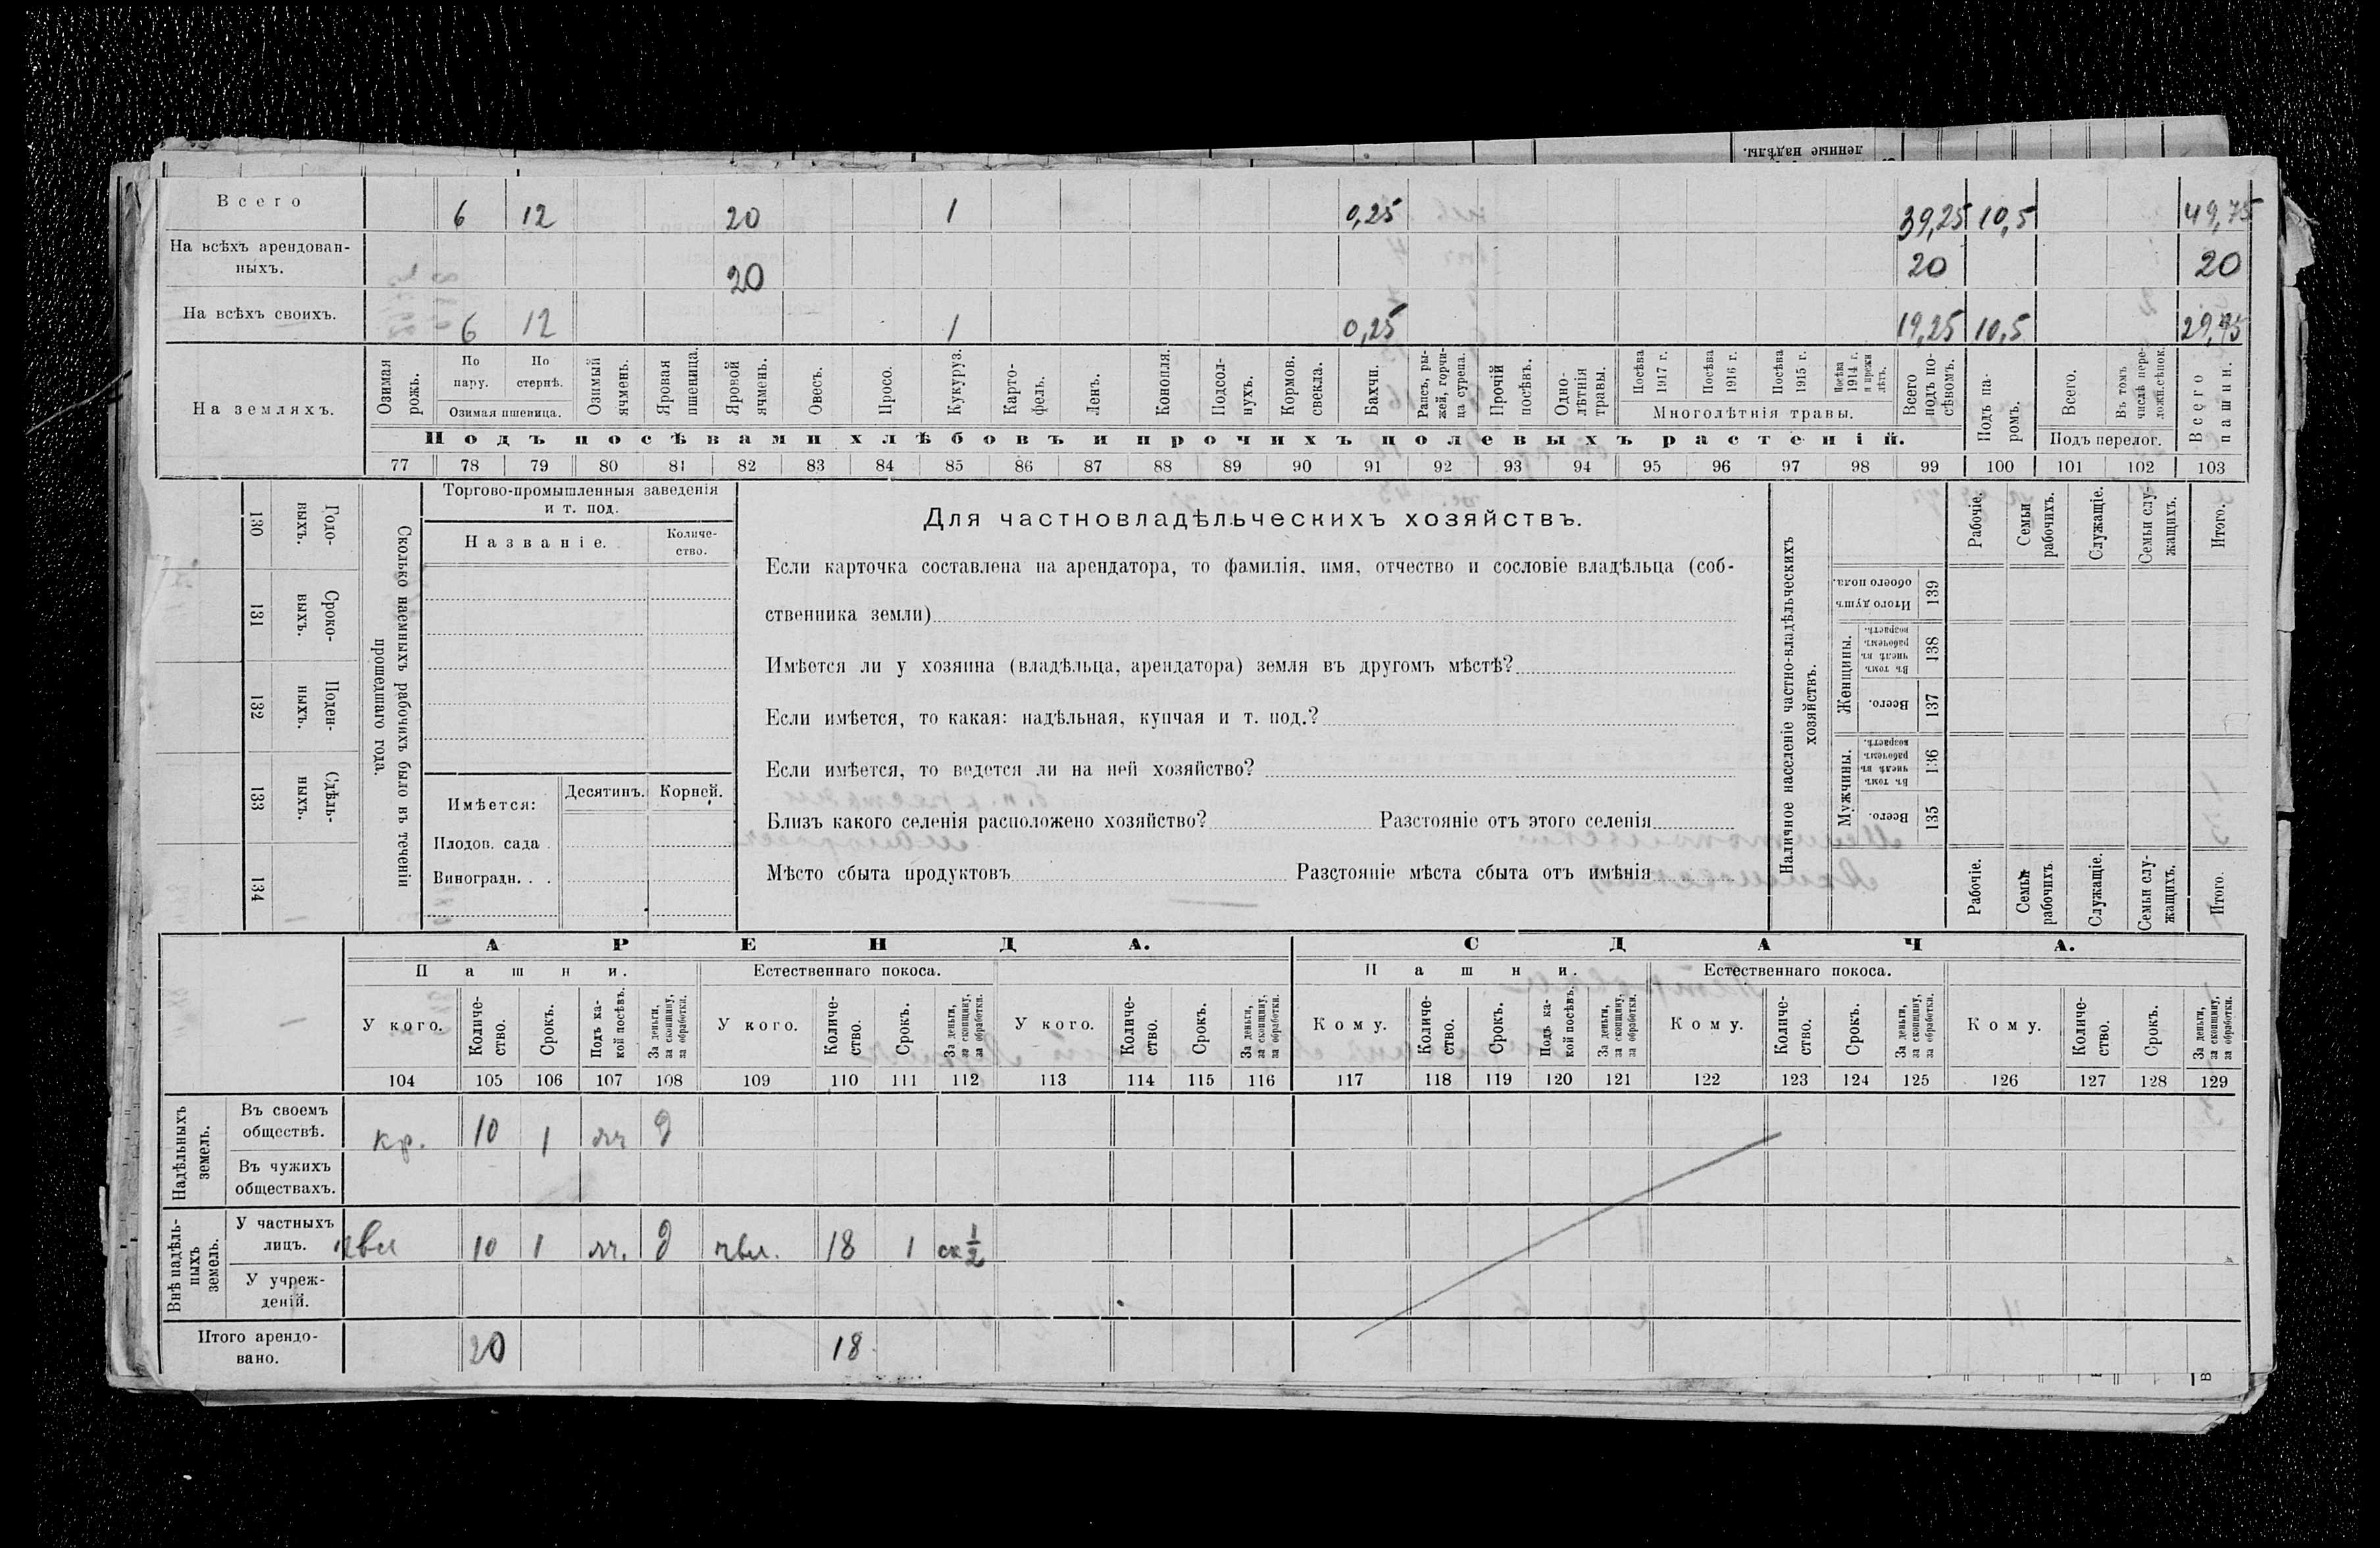 ленные надѣлы.
Всего 6 12 20 1 0,25 39,25 10,5 49,75
На всѣхъ арендован-
ныхъ. 20 20 20
На всѣхъ своихъ. 6 12 1 0,25 19,25 10,5 29,75
На земляхъ.
Озимая рожь.
По пару.
По стернѣ.
Озимая пшеница.
Озимый ячмень.
Яровая пшеница.
Яровой ячмень.
Овесъ.
Просо.
Кукуруз.
Карто-
фель.
Ленъ.
Конопля.
Подсол-
нухъ.
Кормов.
свекла.
Бахчи.
Рапсъ, ры-
жей, горчи-
ца сурепа.
Прочій
посѣвъ.
Одно-
лѣтнія
травы.
Посѣва
1917 г.
Посѣва
1916 г.
Посѣва
1915 г.
Посѣва
1914 г.
и прежн
лѣтъ.
Многолѣтнія травы.
Всего
подъ по-
сѣвомъ.
Подъ па-
ромъ.
Всего.
Въ томъ
числѣ пере-
ложн.сѣнок.
Подъ перелог.
Всего
пашни.
Подъ посѣвами хлѣбовъ и прочихъ полевыхъ растеній.
77 78 79 80 81 82 83 84 85 86 87 88 89 90 91 92 93 94 95 96 97 98 99 100 101 102 103
Годо-
выхъ.
130
Сроко-
выхъ.
131
Поден-
ныхъ.
132
Сдѣль-
ныхъ.
133
134
Сколько наемныхъ рабочихъ было въ теченіи
прошедшаго года.
Торгово-промышленныя заведенія
и т. под.
Названіе.
Количе-
ство.
Имѣется:
Десятинъ. Корней.
Плодов. сада .
Виноградн. . .
Для частновладѣльческихъ хозяйствъ.
Если карточка составлена на арендатора, то фамилія, имя, отчество и сословіе владѣльца (соб-
ственника земли)
Имѣется ли у хозяина (владѣльца, арендатора) земля въ другомъ мѣстѣ?
Если имѣется, то какая: надѣльная, купчая и т. под.?
Если имѣется, то ведется ли на ней хозяйство?
Близъ какого селенія расположено хозяйство? Разстояніе отъ этого селенія
Мѣсто сбыта продуктовъ Разстояніе мѣста сбыта отъ имѣнія
Наличное населеніе частно-владѣльческихъ
хозяйствъ.
Рабочіе.
Семьи
рабочихъ.
Служащіе.
Семьи слу-
жащихъ.
Итого.
Итого душъ
обоего пола.
139
Женщины.
Въ томъ
числѣ въ
рабочемъ
возрастѣ.
138
Всего.
137
Мужчины.
Въ томъ
числѣ въ
рабочемъ
возрастѣ.
136
Всего.
135
Рабочіе.
Семьи
рабочихъ.
Служащіе.
Семьи слу-
жащихъ.
Итого.
АРЕНДА. СДАЧА.
Пашни. Естественнаго покоса. Пашни. Естественнаго покоса.
У кого.
Количе-
ство.
Срокъ.
Подъ ка-
кой посѣвъ.
За деньги,
за скопщину,
за обработки.
У кого.
Количе-
ство.
Срокъ.
За деньги,
за скопщину,
за обработки.
У кого.
Количе-
ство.
Срокъ.
За деньги,
за скопщину,
за обработки.
Кому.
Количе-
ство.
Срокъ.
Подъ ка-
кой посѣвъ.
За деньги,
за скопщину,
за обработки.
Кому.
Количе-
ство.
Срокъ.
За деньги,
за скопщину,
за обработки.
Кому.
Количе-
ство.
Срокъ.
За деньги,
за скопщину,
за обработки.
104 105 106 107 108 109 110 111 112 113 114 115 116 117 118 119 120 121 122 123 124 125 126 127 128 129
Надѣльныхъ
земель.
Въ своемъ
обществѣ. кр. 10 1 яч д
Въ чужихъ
обществахъ.
Внѣ надѣль-
ныхъ
земель.
У частныхъ
лицъ. чвл 10 1 яч. д чвл. 18 1 ск 1/2
У учреж-
деній.
Итого арендо-
вано. 20 18